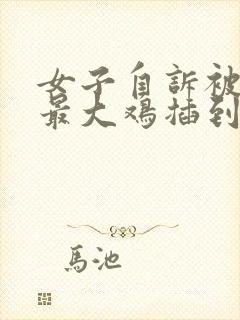 女子自訴被
最大鸡插到
馬池